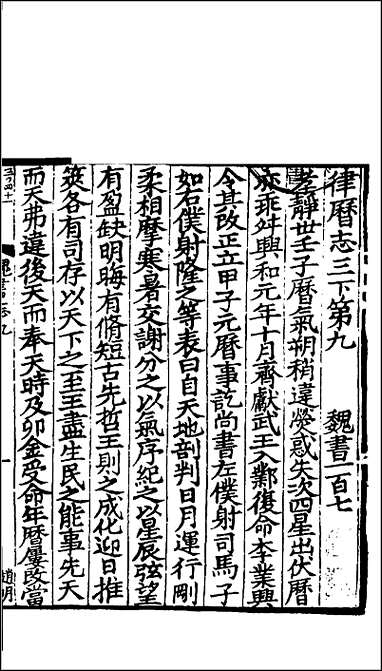 律曆志三下第九　魏書一百七
孝靜世壬子曆氣朔稍違熒惑失次四星出伏曆
亦乖舛興和元年十月齊獻武王入鄴復命李業興
令其改正立甲子元曆事訖尚書左僕射司馬子
如右僕射隆之等表曰自天地剖判日月運行剛
柔相摩寒暑交謝分之以氣序紀之以星辰弦望
有盈缺明晦有脩短古先哲王則之成化迎日推
筴各有司存以天下之至王盡生民之能事先天
而天弗違後天而奉天時及卯金受命年曆屢改當